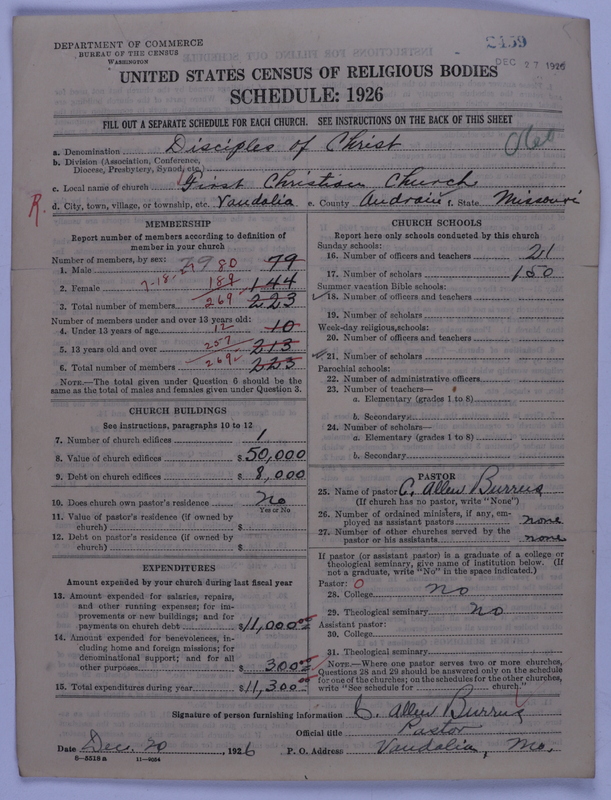 DEPARTMENT OF COMMERCE
BUREAU OF THE CENSUS
WASHINGTON
2459
DEC 27 1926
UNITED STATES CENSUS OF RELIGIOUS BODIES
SCHEDULE: 1926
FILL OUT A SEPARATE SCHEDULE FOR EACH CHURCH. SEE INSTRUCTIONS ON THE BACK OF THIS SHEET
a. Denomination Disciples of Christ
b. Division (Association, Conference, Diocese, Presbytery, Synod, etc.)
c. Local name of church First Christian Church
R. d. City, town, village, or township, etc. Vandalia e. County Audrain f. State Missouri
MEMBERSHIP
Report number of members according to definition of
member in your church
Number of members, by sex:
1. Male 79 80 79
2. Female 189 144
3. Total number of members 269 223
Number of members under and over 13 years old:
4. Under 13 years of age 12 10
5. 13 years old and over 257 213
6. Total number of members 269 223
NOTE.—The total given under Question 6 should be the
same as the total of males and females given under Question 3.
CHURCH BUILDINGS
See instructions, paragraphs 10 to 12
7. Number of church edifices 1
8. Value of church edifices $50,000
9. Debt on church edifices $8,000
10. Does church own pastor's residence No
Yes or No
11. Value of pastor's residence (if owned by
church) $
12. Debt on pastor's residence (if owned by
church) $
EXPENDITURES
Amount expended by your church during last fiscal year
13. Amount expended for salaries, repairs,
and other running expenses; for im-
provements or new buildings; and for
payments on church debt $11,000.00
14. Amount expended for benevolences, in-
cluding home and foreign missions; for
denominational support; and for all
other purposes $300.00
15. Total expenditures during year $11,300.00
CHURCH SCHOOLS
Report here only schools conducted by this church
Sunday schools:
16. Number of officers and teachers 21
17. Number of scholars 150
Summer vacation Bible schools:
18. Number of officers and teachers
19. Number of scholars
Week-day religious schools:
20. Number of officers and teachers
21. Number of scholars
Parochial schools:
22. Number of administrative officers
23. Number of teachers—
a. Elementary (grades 1 to 8)
b. Secondary
24. Number of scholars—
a. Elementary (grades 1 to 8)
b. Secondary
PASTOR
25. Name of pastor C. Allen Burrus
(If church has no pastor, write "None")
26. Number of ordained ministers, if any, em-
ployed as assistant pastors none
27. Number of other churches served by the
pastor or his assistants none
If pastor (or assistant pastor) is a graduate of a college or
theological seminary, give name of institution below. (If
not a graduate, write "No" in the space indicated.)
Pastor: O
28. College no
29. Theological seminary No
Assistant pastor:
30. College
31. Theological seminary
NOTE.—Where one pastor serves two or more churches,
Questions 28 and 29 should be answered only on the schedule
for one of the churches; on the schedules for the other churches,
write "See schedule for church."
Signature of person furnishing information C. Allen Burrus
Official title Pastor
Date Dec. 20, 1926 P. O. Address Vandalia, Mo.
8—5518a 11—9064